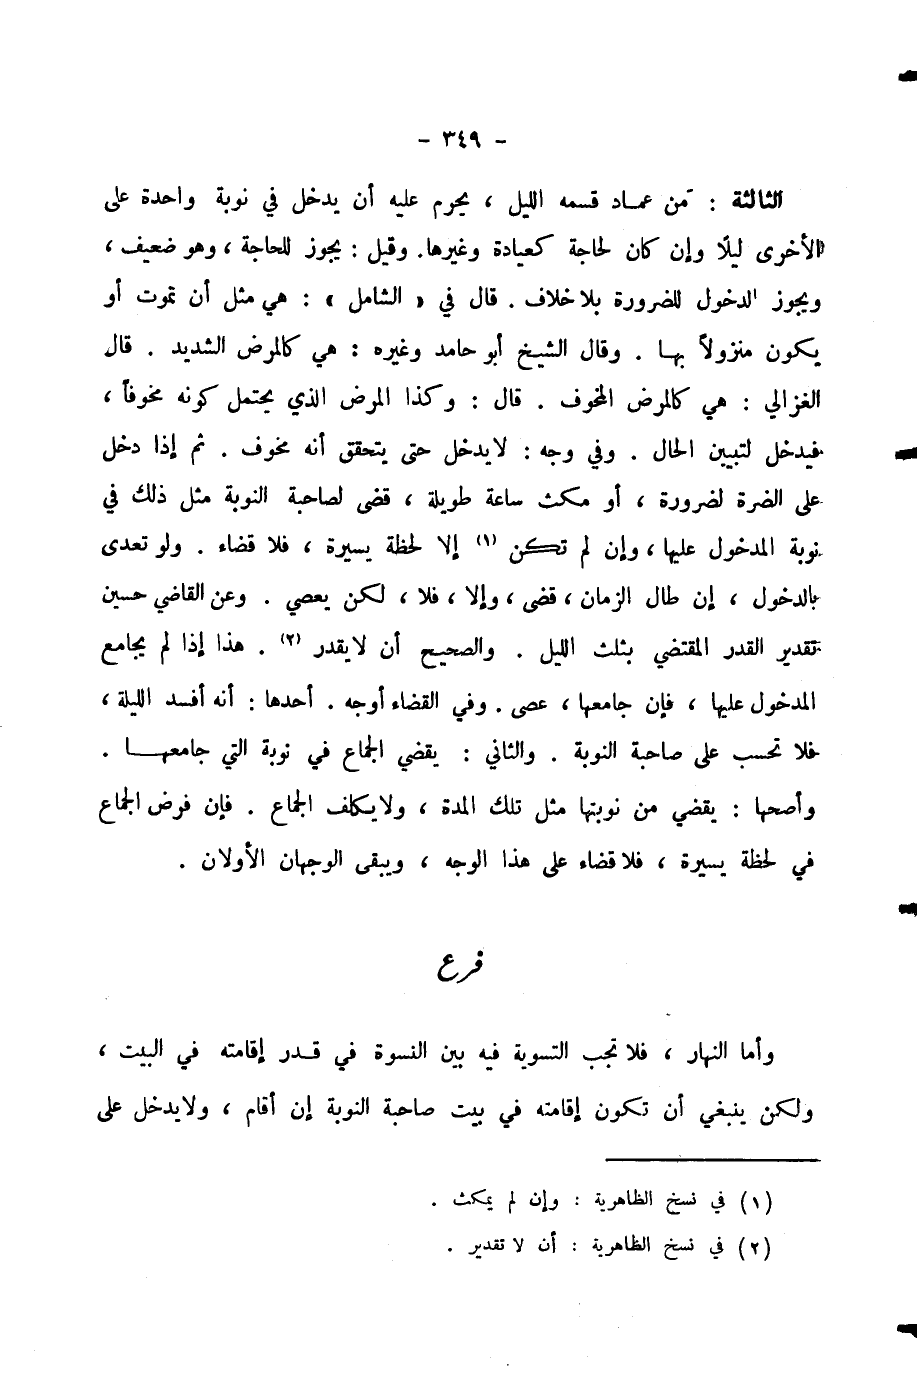 - ٣٤٩ -
الثالثة : مَن عماد قسمه الليل ، يحرم عليه أن يدخل في نوبة واحدة على
الأخرى ليلًا وإن كان لحاجة كعيادة وغيرها. وقيل : يجوز للحاجة ، وهو ضعيف ،
ويجوز الدخول للضرورة بلا خلاف . قال في « الشامل » : هي مثل أن تموت أو
يكون منزولاً بها . وقال الشيخ أبو حامد وغيره : هي كالمرض الشديد . قال
الغزالي : هي كالمرض المخوف . قال : وكذا المرض الذي يحتمل كونه مخوفاً ،
فيدخل لتبيين الحال . وفي وجه : لا يدخل حتى يتحقق أنه مخوف . ثم إذا دخل
على الضرة لضرورة ، أو مكث ساعة طويلة ، قضى لصاحبة النوبة مثل ذلك في
نوبة المدخول عليها ، وإن لم تكن (١) إلا لحظة يسيرة ، فلا قضاء . ولو تعدى
بالدخول ، إن طال الزمان ، قضى ، وإلا ، فلا ، لكن يعصي . وعن القاضي حسين
تقدير القدر المقتضي بثلث الليل . والصحيح أن لا يقدر (٢) . هذا إذا لم يجامع
المدخول عليها ، فإن جامعها ، عصى . وفي القضاء أوجه . أحدها : أنه أفسد الليلة ،
فلا تحسب على صاحبة النوبة . والثاني : يقضي الجماع في نوبة التي جامعها .
وأصحها : يقضي من نوبتها مثل تلك المدة ، ولا يكلف الجماع . فإن فرض الجماع
في لحظة يسيرة ، فلا قضاء على هذا الوجه ، ويبقى الوجهان الأولان .
فرع
وأما النهار ، فلا تجب التسوية فيه بين النسوة في قدر إقامته في البيت ،
ولكن ينبغي أن تكون إقامته في بيت صاحبة النوبة إن أقام ، ولا يدخل على
(١) في نسخ الظاهرية : وإن لم يمكث .
(٢) في نسخ الظاهرية : أن لا تقدير .